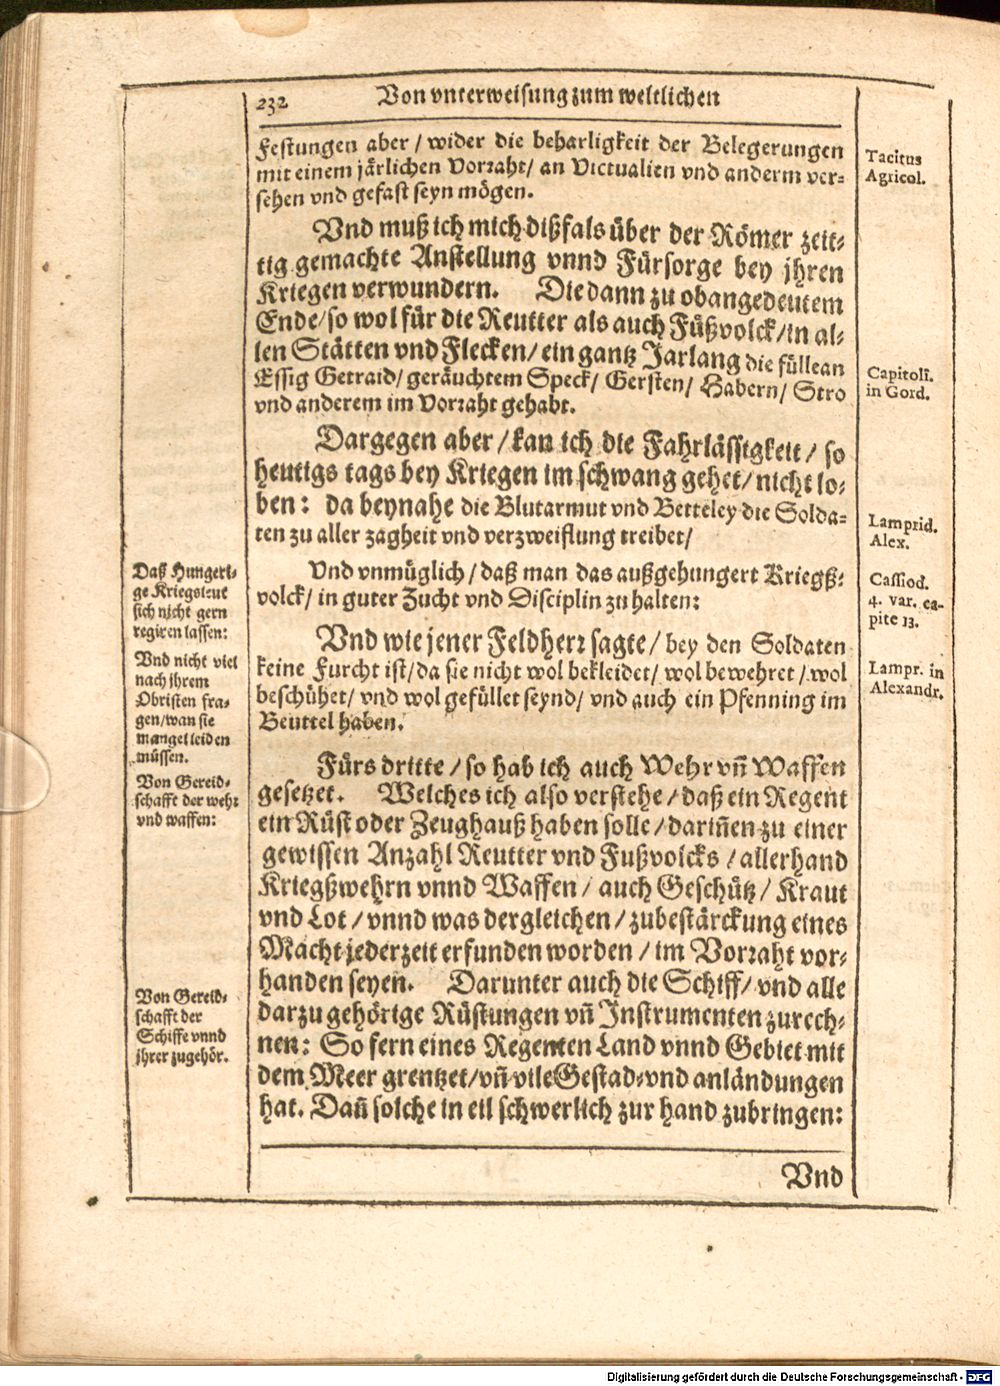 232 Von vnterweisung zum weltlichen
Festungen aber / wider die beharligkeit der Belegerungen
mit einem järlichen Vorraht / an Victualien vnd anderm ver-
sehen vnd gefast seyn mögen.
Vnd muß ich mich dißfals über der Römer zeit-
tig gemachte Anstellung vnnd Fürsorge bey jhren
Kriegen verwundern. Die dann zu obangedeutem
Ende / so wol für die Reutter als auch Füßvolck / in al-
len Stätten vnd Flecken / ein gantz Jarlang die fülle an
Essig Getraid / geräuchtem Speck / Gersten / Habern / Stro
vnd anderem im Vorraht gehabt.
Dargegen aber / kan ich die Fahrlässigkeit / so
heutigs tags bey Kriegen im schwang gehet / nicht lo-
ben: da beynahe die Blutarmut vnd Betteley die Solda-
ten zu aller zagheit vnd verzweiflung treibet /
Vnd vnmüglich / daß man das außgehungert Kriegß-
volck / in guter Zucht vnd Disciplin zu halten:
Vnd wie jener Feldherr sagte / bey den Soldaten
keine Furcht ist / da sie nicht wol bekleidet / wol bewehret / wol
beschühet / vnd wol gefüllet seynd / vnd auch ein Pfenning im
Beuttel haben.
Fürs dritte / so hab ich auch Wehr vñ Waffen
gesetzet. Welches ich also verstehe / daß ein Regent
ein Rüst oder Zeughauß haben solle / dariñen zu einer
gewissen Anzahl Reutter vnd Fußvolcks / allerhand
Kriegßwehrn vnnd Waffen / auch Geschütz / Kraut
vnd Lot / vnnd was dergleichen / zubestärckung eines
Macht jederzeit erfunden worden / im Vorraht vor-
handen seyen. Darunter auch die Schiff / vnd alle
darzu gehörige Rüstungen vñ Instrumenten zurech-
nen: So fern eines Regenten Land vnnd Gebiet mit
dem Meer grentzet / vñ vile Gestad- vnd anländungen
hat. Dañ solche in eil schwerlich zur hand zubringen:
Vnd
Daß Hungeri-
ge Kriegsleut
sich nicht gern
regiren lassen:
Vnd nicht viel
nach jhrem
Obristen fra-
gen / wan sie
mangel leiden
müssen.
Von Gereid-
schafft der wehr
vnd waffen:
Von Gereid-
schafft der
Schiffe vnnd
jhrer zugehör.
Tacitus
Agricol.
Capitolī.
in Gord.
Lamprid.
Alex.
Cassiod.
4. var. ca-
pite 13.
Lampr. in
Alexandr.
Digitalisierung gefördert durch die Deutsche Forschungsgemeinschaft - DFG